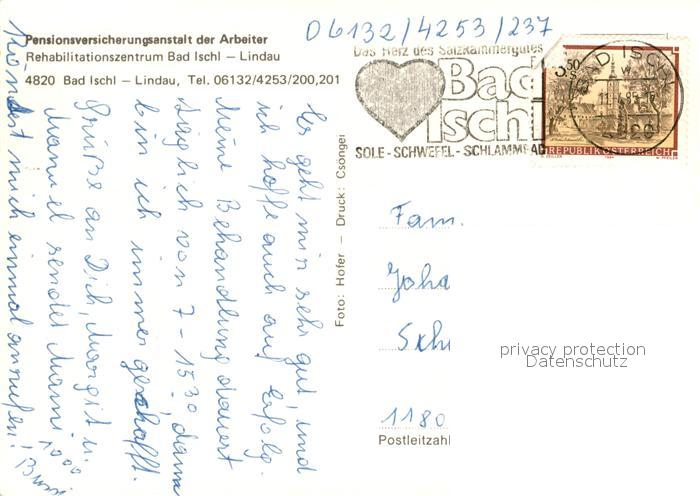 06132/4253/237
Pensionsversicherungsanstalt der Arbeiter
Rehabilitationszentrum Bad Ischl – Lindau
4820 Bad Ischl – Lindau, Tel. 06132/4253/200,201
Das Herz des Salzkammergutes
Bad
Ischl
SOLE - SCHWEFEL - SCHLAMMBAD
BAD ISCHL
3.50
REPUBLIK ÖSTERREICH
Es geht mir sehr gut, und
ich hoffe auch auf Erfolg.
Meine Behandlung dauert
täglich von 7 - 15 30, dann
bin ich immer geschafft.
Grüße an Dich, Margit u.
Manuel sendet Mami
1000
Könntest mich einmal anrufen!
Foto: Hofer – Druck: Csöngei
Fam.
Joha
Sch
1180
Postleitzahl
privacy protection
Datenschutz